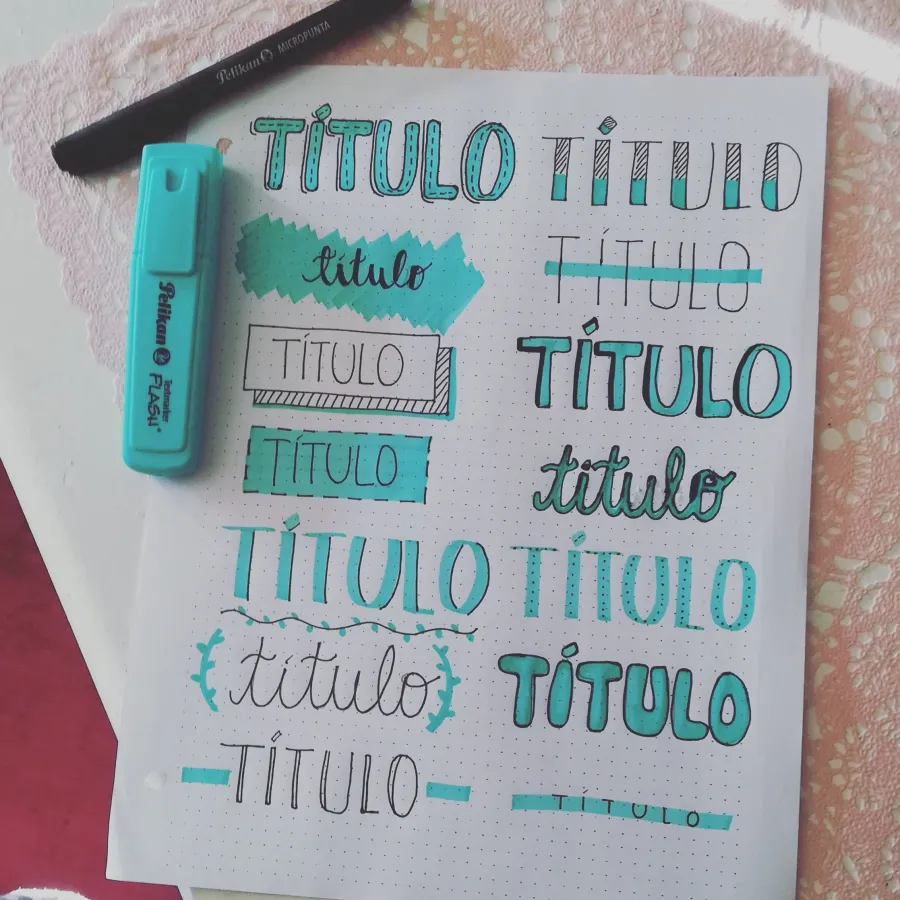 Pelikan MICROPUNTA
Pelikan
Textmarker
FLASH
TÍTULO
TÍTULO
título
TÍTULO
TÍTULO
TÍTULO
TÍTULO
título
TÍTULO
TÍTULO
título
TÍTULO
TÍTULO
TÍTULO